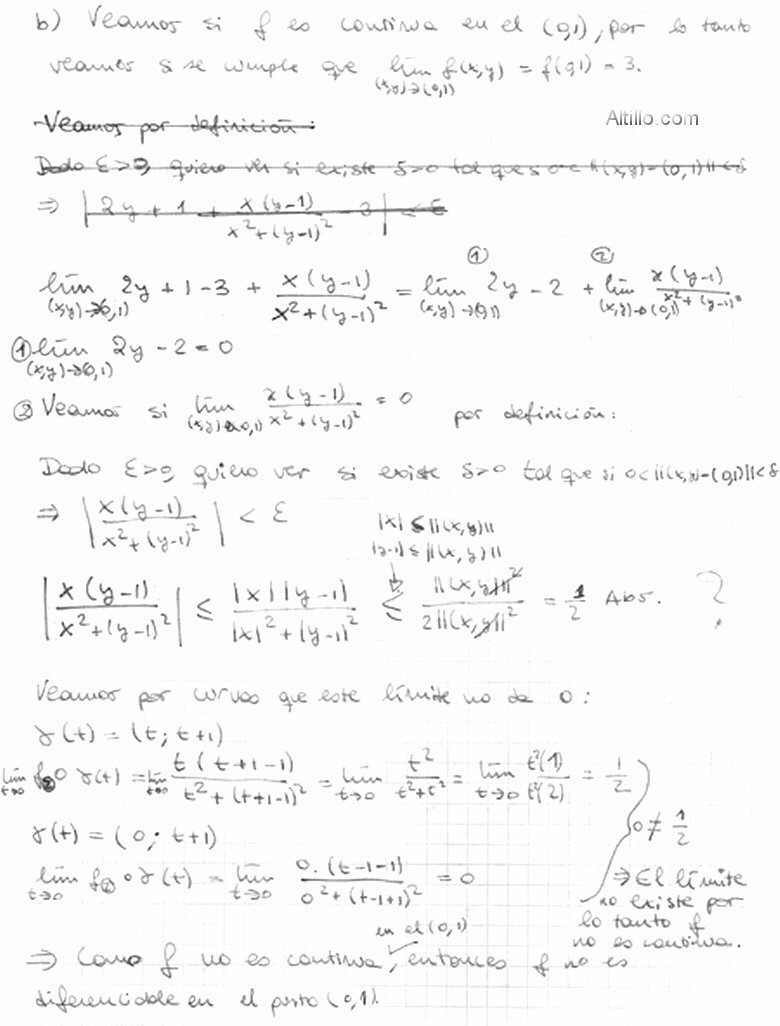 b) Veamos si f es continua en el (0,1), por lo tanto
veamos si se cumple que lím f(x,y) = f(0,1) = 3.
(x,y)→(0,1)
Altillo.com
Veamos por definición:
Dado ε>0, quiero ver si existe δ>0 tal que si 0<||(x,y)-(0,1)||<δ
⇒ |2y + 1 + x(y-1)/(x²+(y-1)²) - 3| < ε
lím (x,y)→(0,1) 2y + 1 - 3 + x(y-1)/(x²+(y-1)²) = ① lím (x,y)→(0,1) 2y - 2 + ② lím (x,y)→(0,1) x(y-1)/(x²+(y-1)²)
① lím (x,y)→(0,1) 2y - 2 = 0
② Veamos si lím (x,y)→(0,1) x(y-1)/(x²+(y-1)²) = 0 por definición:
Dado ε>0, quiero ver si existe δ>0 tal que si 0<||(x,y)-(0,1)||<δ
⇒ |x(y-1)/(x²+(y-1)²)| < ε
|x| ≤ ||(x,y)||
|y-1| ≤ ||(x,y)||
|x(y-1)/(x²+(y-1)²)| ≤ |x||y-1|/(|x|²+|y-1|²) ≤ ||(x,y)||²/(2||(x,y)||²) = 1/2 Abs. ?
Veamos por curvas que este límite no da 0:
γ(t) = (t; t+1)
lím t→0 f② o γ(t) = lím t→0 t(t+1-1)/(t²+(t+1-1)²) = lím t→0 t²/(t²+t²) = lím t→0 t²(1)/t²(2) = 1/2
γ(t) = (0; t+1)
0 ≠ 1/2
lím t→0 f② o γ(t) = lím t→0 0.(t-1-1)/(0²+(t-1+1)²) = 0
⇒ El límite
no existe por
lo tanto f
no es continua.
en el (0,1)
⇒ Como f no es continua, entonces f no es
diferenciable en el punto (0,1).